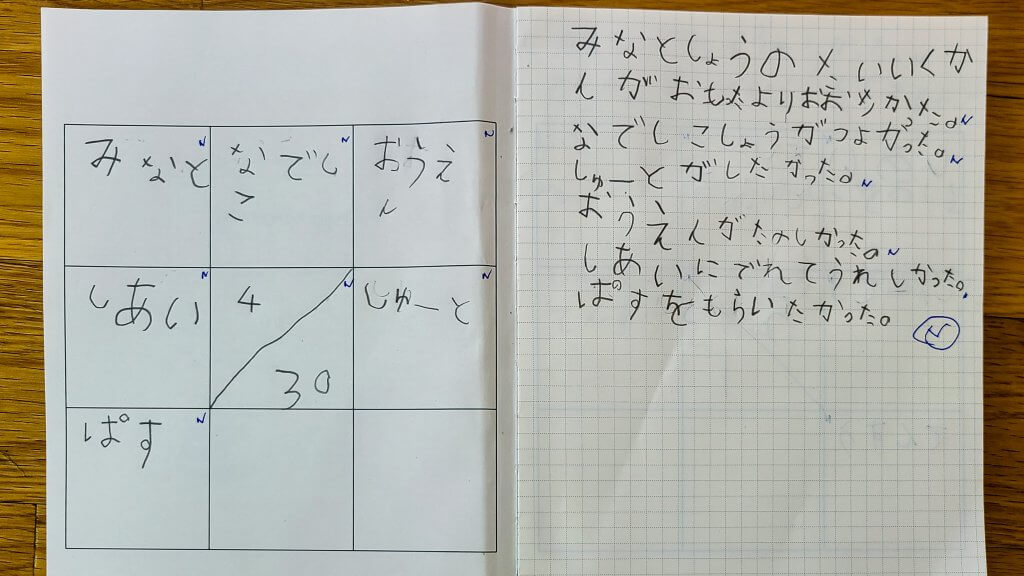 みなと
なでし
こ
おうえ
ん
しあい
4
30
しゅーと
ぱす
みなとしょうのたいいくか
んがおもたよりおおきかた。
なでしこしょうがつよかった。
しゅーとがしたかった。
おうえんがたのしかった。
しあいにでれてうれしかった。
ぱすをもらいたかった。